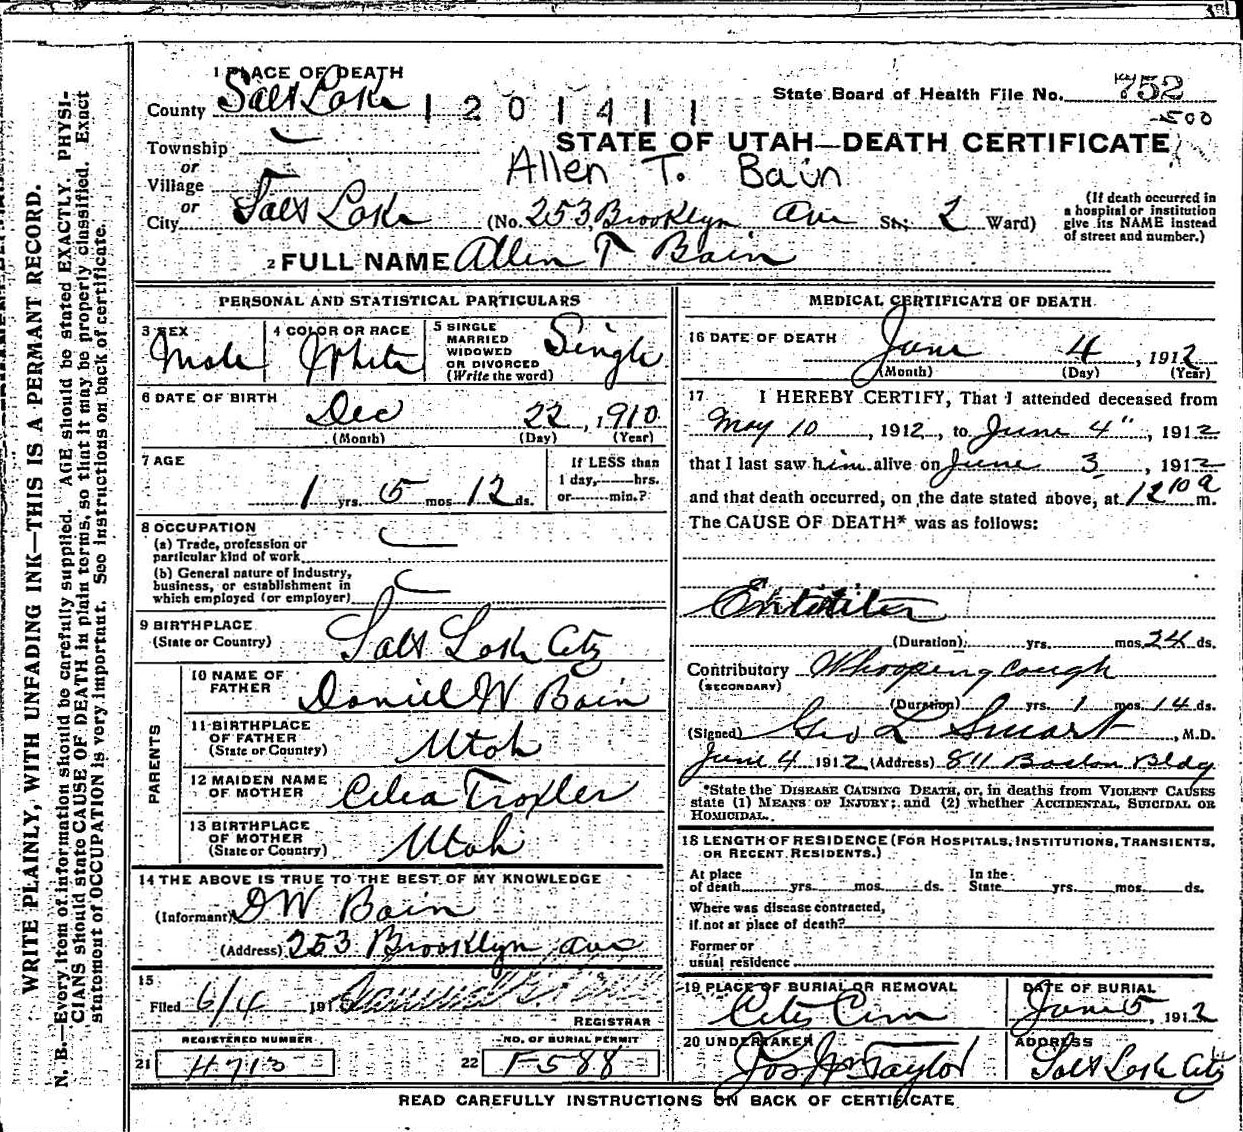 1 PLACE OF DEATH
County Salt Lake 1201411
State Board of Health File No. 752
500
Township
STATE OF UTAH—DEATH CERTIFICATE
or
Village
Allen T. Bain
or
City Salt Lake (No. 253 Brooklyn Ave St; 2 Ward)
(If death occurred in a hospital or institution give its NAME instead of street and number.)
2 FULL NAME Allen T Bain
PERSONAL AND STATISTICAL PARTICULARS
3 SEX Male
4 COLOR OR RACE White
5 SINGLE MARRIED WIDOWED OR DIVORCED (Write the word) Single
6 DATE OF BIRTH
Dec 22, 1910
(Month) (Day) (Year)
7 AGE
1 yrs. 5 mos 12 ds.
If LESS than 1 day, hrs. or min.?
8 OCCUPATION
(a) Trade, profession or
particular kind of work
(b) General nature of Industry,
business, or establishment in
which employed (or employer)
9 BIRTHPLACE
(State or Country) Salt Lake City
PARENTS
10 NAME OF FATHER Daniel W Bain
11 BIRTHPLACE OF FATHER (State or Country) Utah
12 MAIDEN NAME OF MOTHER Celia Troxler
13 BIRTHPLACE OF MOTHER (State or Country) Utah
14 THE ABOVE IS TRUE TO THE BEST OF MY KNOWLEDGE
(Informant) D W Bain
(Address) 253 Brooklyn Ave
15
Filed 6/4 191
REGISTRAR
REGISTERED NUMBER
21 H713
NO. OF BURIAL PERMIT
22 F588
MEDICAL CERTIFICATE OF DEATH
16 DATE OF DEATH
June 4, 1912
(Month) (Day) (Year)
17 I HEREBY CERTIFY, That I attended deceased from
May 10, 1912, to June 4", 1912
that I last saw him alive on June 3, 1912
and that death occurred, on the date stated above, at 12 10 a m.
The CAUSE OF DEATH* was as follows:
(Duration) yrs. mos. 24 ds.
Contributory Whooping cough
(SECONDARY)
(Duration) yrs. 1 mos. 14 ds.
(Signed) Geo L Smart, M.D.
June 4 1912 (Address) 811 Boston Bldg
*State the DISEASE CAUSING DEATH, or, in deaths from VIOLENT CAUSES
state (1) MEANS OF INJURY; and (2) whether ACCIDENTAL, SUICIDAL OR
HOMICIDAL.
18 LENGTH OF RESIDENCE (FOR HOSPITALS, INSTITUTIONS, TRANSIENTS,
OR RECENT RESIDENTS.)
At place of death yrs. mos. ds. In the State yrs. mos. ds.
Where was disease contracted,
if not at place of death?
Former or
usual residence
19 PLACE OF BURIAL OR REMOVAL
City Cem
DATE OF BURIAL
June 5, 1912
20 UNDERTAKER
Jos Wm Taylor
ADDRESS
Salt Lake City
READ CAREFULLY INSTRUCTIONS ON BACK OF CERTIFICATE
WRITE PLAINLY, WITH UNFADING INK—THIS IS A PERMANT RECORD.
N. B.—Every item of information should be carefully supplied. AGE should be stated EXACTLY. PHYSI-
CIANS should state CAUSE OF DEATH in plain terms, so that it may be properly classified. Exact
statement of OCCUPATION is very important. See instructions on back of certificate.